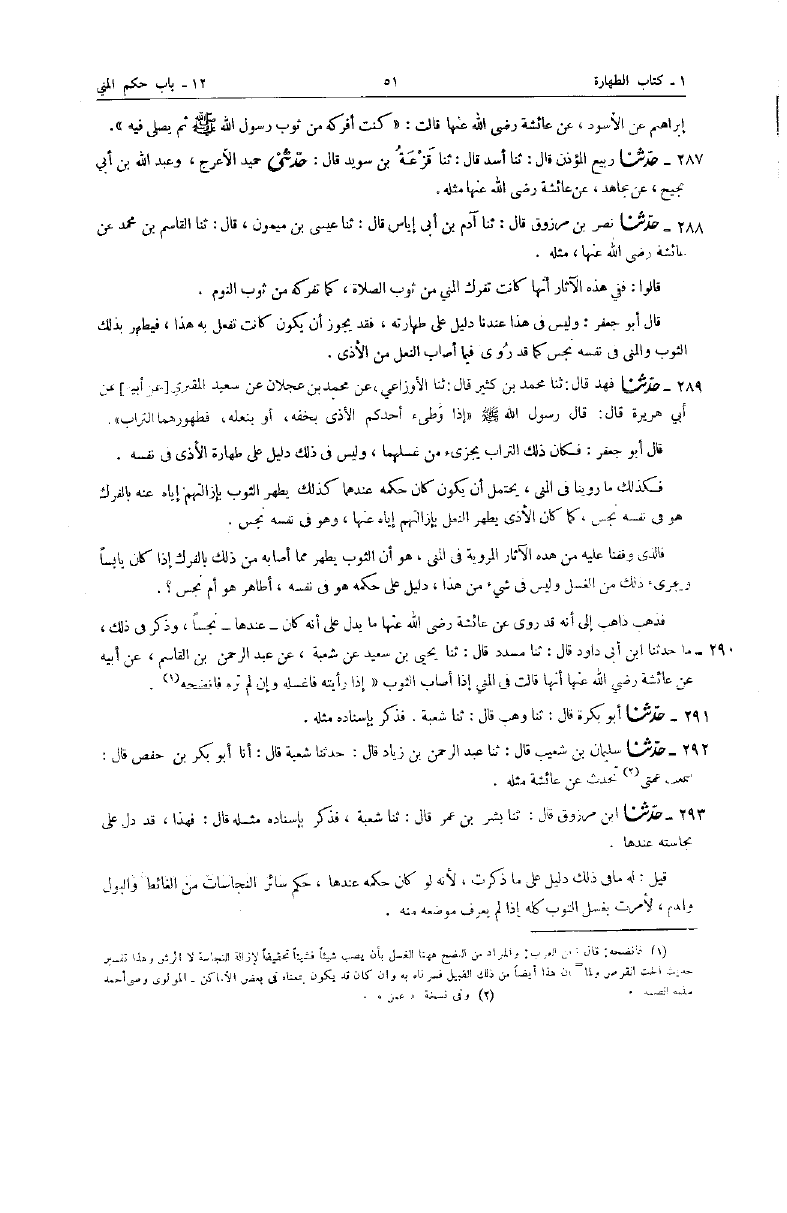 ١ ـ كتاب الطهارة ٥١ ١٢ - باب حكم المني
إبراهيم عن الأسود ، عن عائشة رضى الله عنها قالت : « كنت أفركه من ثوب رسول الله ﷺ ثم يصلى فيه ».
٢٨٧ ـ حدثنا ربيع المؤذن قال : ثنا أسد قال : ثنا قَزَعَةُ بن سويد قال : حدثنى حميد الأعرج ، وعبد الله بن أبي
نجيح ، عن مجاهد ، عن عائشة رضى الله عنها مثله .
٢٨٨ ـ حدثنا نصر بن مرزوق قال : ثنا آدم بن أبى إياس قال : ثنا عيسى بن ميمون ، قال : ثنا القاسم بن محمد عن
عائشة رضى الله عنها ، مثله .
قالوا : ففي هذه الآثار أنها كانت تفرك المني من ثوب الصلاة ، كما تفركه من ثوب النوم .
قال أبو جعفر : وليس فى هذا عندنا دليل على طهارته ، فقد يجوز أن يكون كانت تفعل به هذا ، فيطهر بذلك
الثوب والمنى فى نفسه نجس كما قد رُوى فيما أصاب النعل من الأذى .
٢٨٩ ـ حدثنا فهد قال : ثنا محمد بن كثير قال : ثنا الأوزاعي ، عن محمد بن عجلان عن سعيد المقبري [عن أبيه] عن
أبي هريرة قال : قال رسول الله ﷺ «إذا وَطىء أحدكم الأذى بخفه، أو بنعله، فطهورهما التراب».
قال أبو جعفر : فكان ذلك التراب يجزىء من غسلهما ، وليس فى ذلك دليل على طهارة الأذى فى نفسه .
فكذلك ما روينا فى المنى ، يحتمل أن يكون كان حكمه عندهما كذلك يطهر الثوب بإزالتهم إياه عنه بالفرك
وهو فى نفسه نجس ، كما كان الأذى يطهر النعل بإزالتهم إياه عنها ، وهو فى نفسه نجس .
فالذى وقفنا عليه من هذه الآثار المروية فى المنى ، هو أن الثوب يطهر مما أصابه من ذلك بالفرك إذا كان يابساً
ويجزىء ذلك من الغسل وليس فى شىء من هذا ، دليل على حكمه هو فى نفسه ، أطاهر هو أم نجس ؟ .
فذهب ذاهب إلى أنه قد روى عن عائشة رضى الله عنها ما يدل على أنه كان ـ عندها ـ نجساً ، وذكر فى ذلك ،
٢٩٠ ـ ما حدثنا ابن أبى داود قال : ثنا مسدد قال : ثنا يحيى بن سعيد عن شعبة ، عن عبد الرحمن بن القاسم ، عن أبيه
عن عائشة رضي الله عنها أنها قالت فى المني إذا أصاب الثوب « إذا رأيته فاغسله وإن لم تره فانضحه(١) .
٢٩١ ـ حدثنا أبو بكرة قال : ثنا وهب قال : ثنا شعبة . فذكر بإسناده مثله .
٢٩٢ ـ حدثنا سليمان بن شعيب قال : ثنا عبد الرحمن بن زياد قال : حدثنا شعبة قال : أنا أبو بكر بن حفص قال :
سمعت عمتى(٢) تحدث عن عائشة مثله .
٢٩٣ ـ حدثنا ابن مرزوق قال : ثنا بشر بن عمر قال : ثنا شعبة ، فذكر بإسناده مثله قال : فهذا ، قد دل على
نجاسته عندها .
قيل : له مافى ذلك دليل على ما ذكرت ، لأنه لو كان حكمه عندها ، حكم سائر النجاسات من الغائط والبول
والدم ، لأمرت بغسل الثوب كله إذا لم يعرف موضعه منه .
(١) فانضحه : قال ابن العرب : والمراد من النضح ههنا الغسل بأن يصب شيئاً فشيئاً تحقيقاً لإزالة النجاسة لا الرش وهذا تفسير
حديث الحت القرص ولما أن هذا أيضاً من ذلك القبيل فسرناه به وان كان قد يكون بمعناه فى بعض الأماكن ـ المولوى وصى أحمد
(٢) وفى نسخة « عمن » .